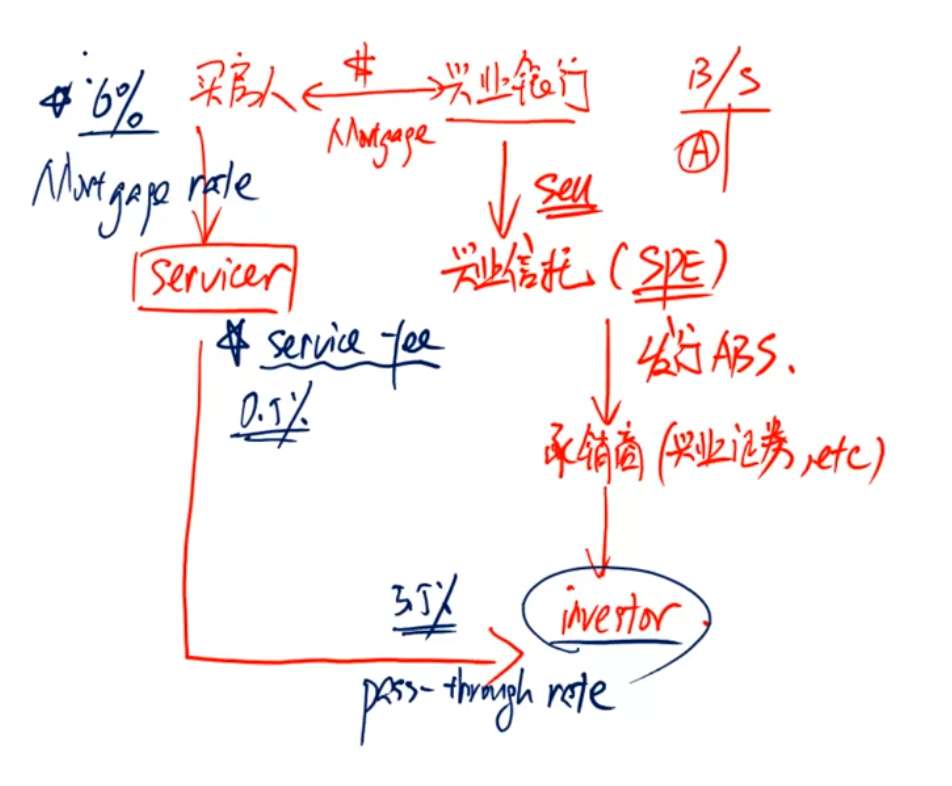 6% 买房人 $ 兴业银行 B/S
Mortgage A
Mortgage rate sell
servicer 兴业信托 (SPE)
service fee 发行ABS.
0.5%
承销商 (兴业证券, etc)
5.5% investor
pass-through rate